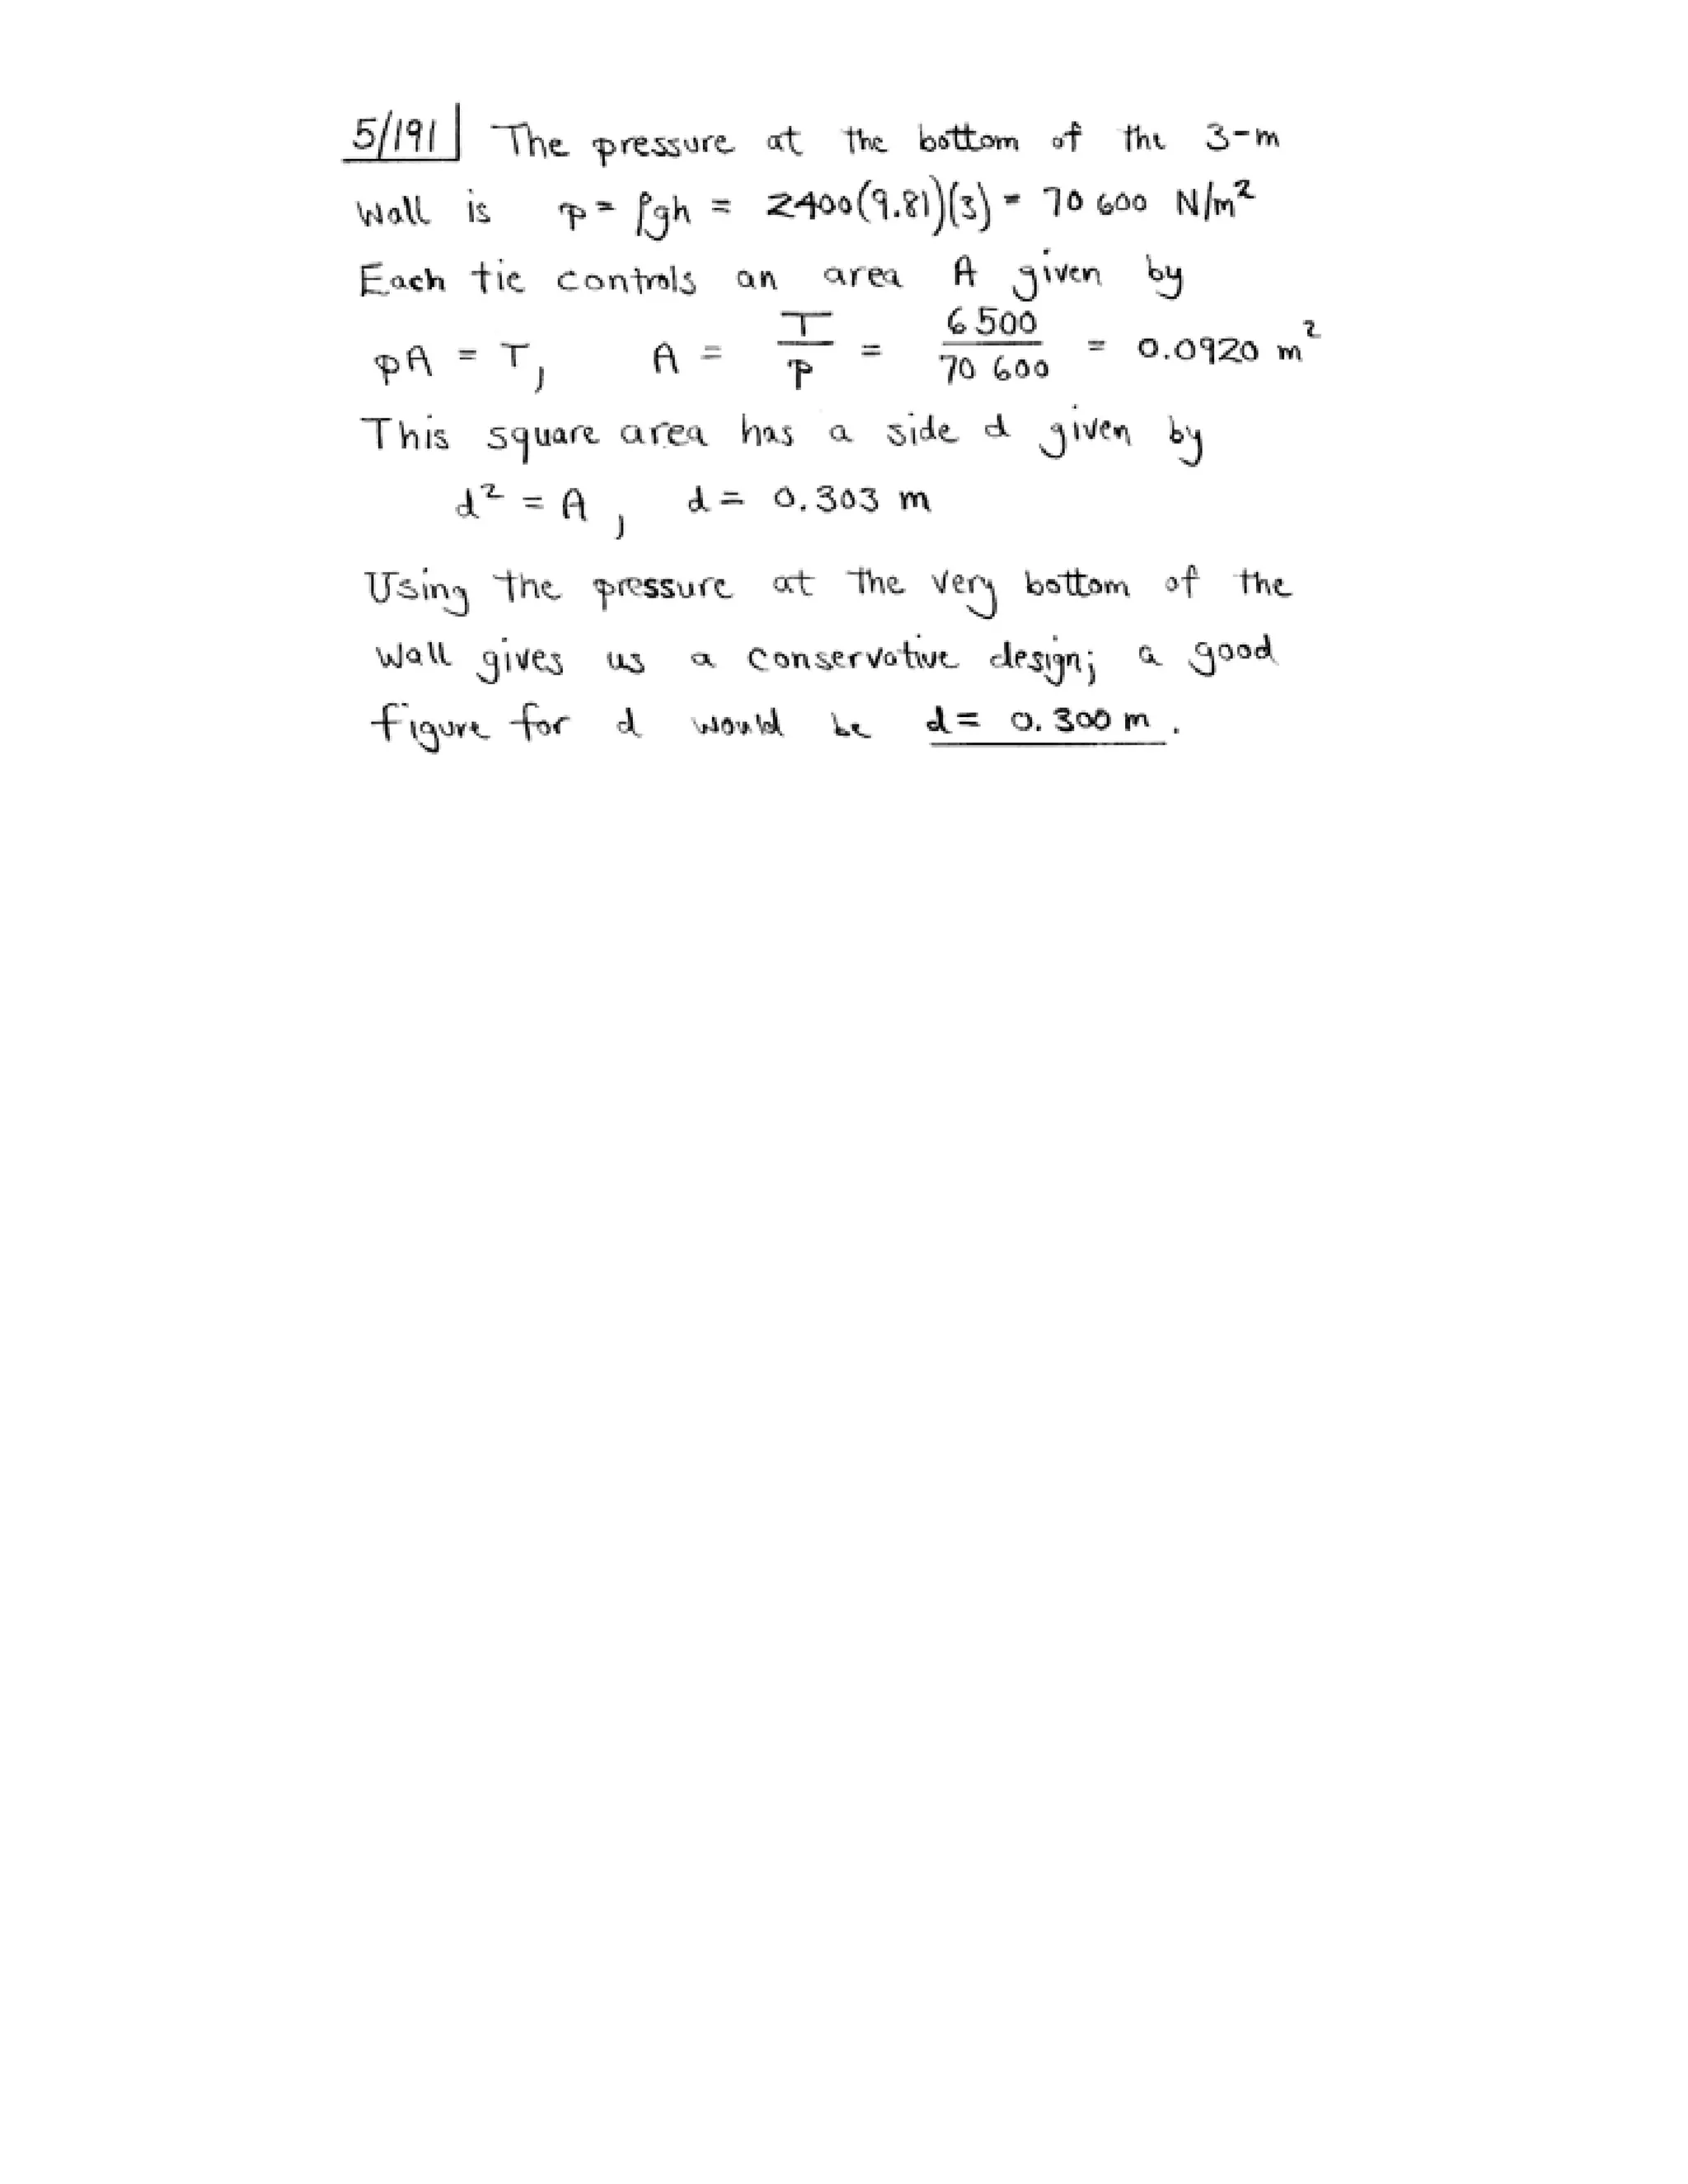 5/191 The pressure at the bottom of the 3-m
wall is p = ρgh = 2400(9.81)(3) = 70 600 N/m²
Each tie controls an area A given by
pA = T, A = T/p = 6500/70 600 = 0.0920 m²
This square area has a side d given by
d² = A, d = 0.303 m
Using the pressure at the very bottom of the
wall gives us a conservative design; a good
figure for d would be d = 0.300 m.